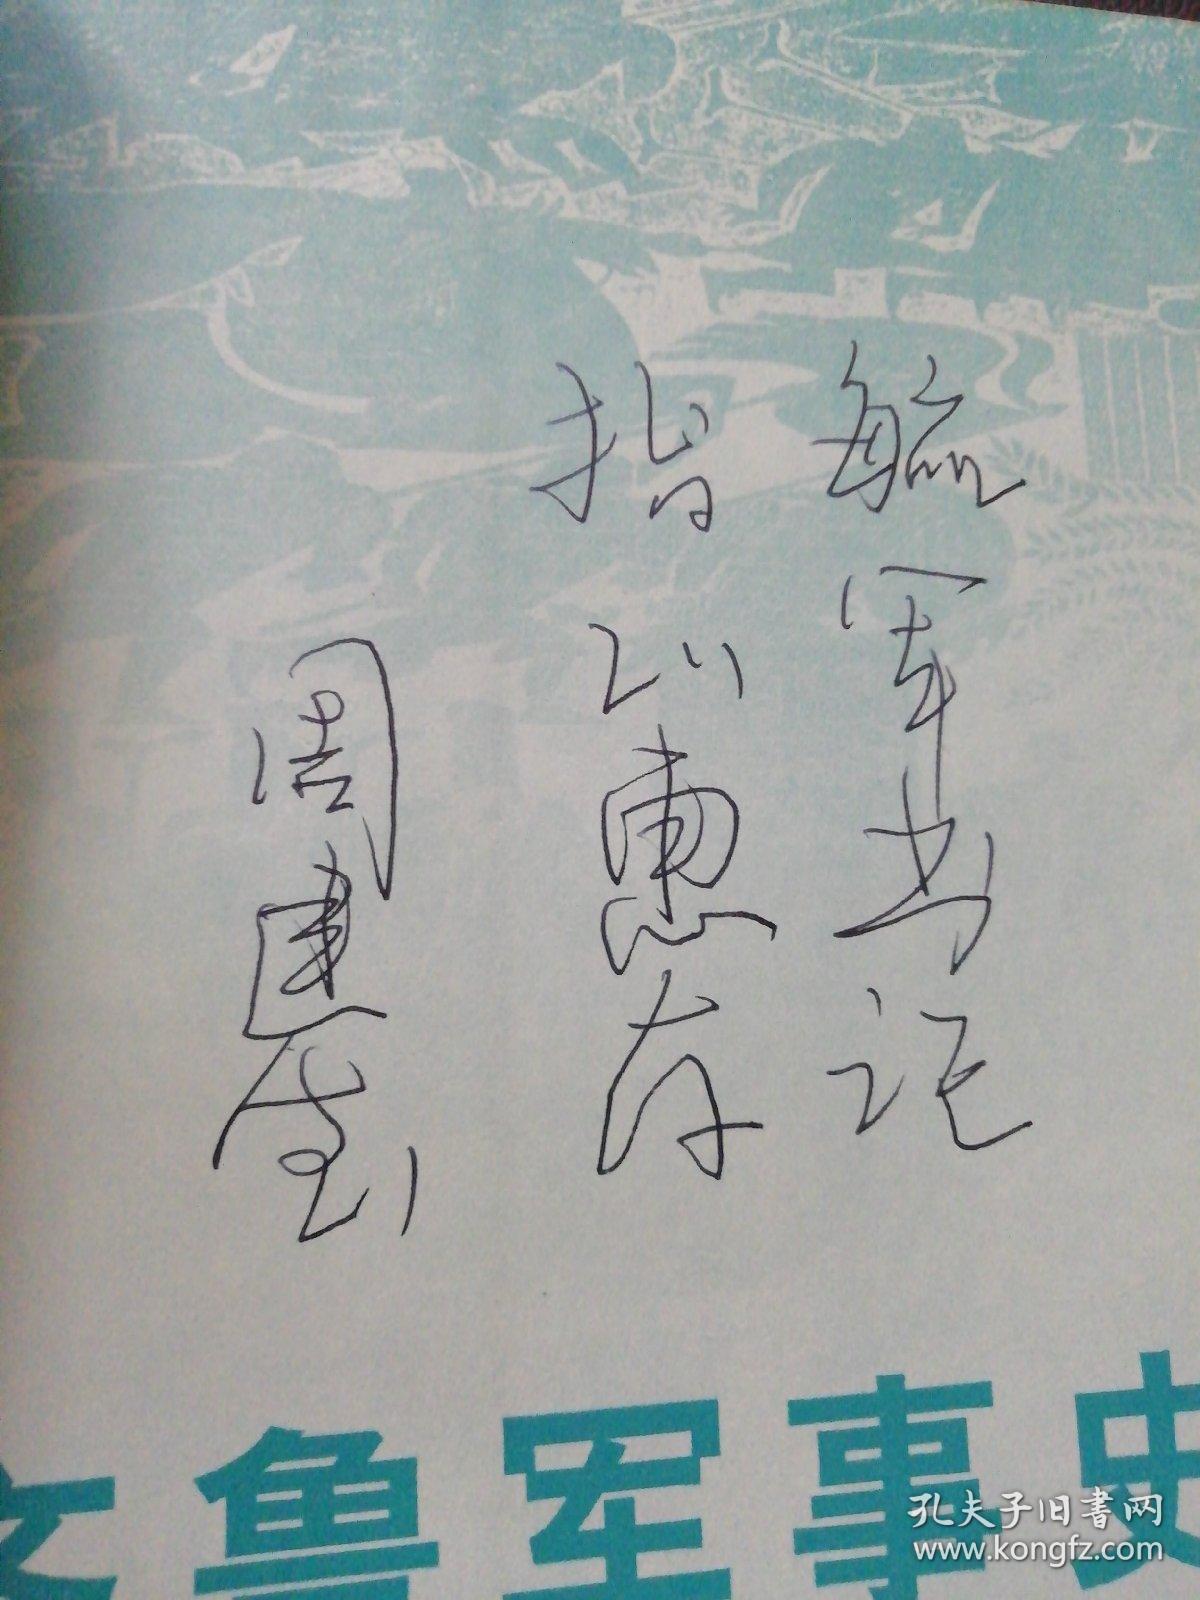 毓军书记
指训惠存
周建
鲁军事史
孔夫子旧書网
www.kongfz.com